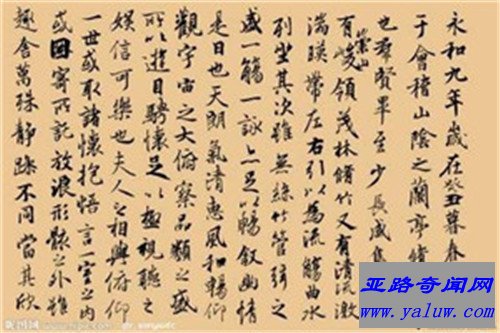 永和九年歲在癸丑暮春
于會稽山陰之蘭亭脩
也羣賢畢至少長咸集
有崇山峻領茂林脩竹又有清流激
湍暎帶左右引以為流觴曲水
列坐其次雖無絲竹管弦之
盛一觴一詠亦足以暢敘幽情
是日也天朗氣清惠風和暢仰
觀宇宙之大俯察品類之盛
所以遊目騁懷足以極視聽之
娛信可樂也夫人之相與俯仰
一世或取諸懷抱悟言一室之內
或因寄所託放浪形骸之外雖
趣舍萬殊靜躁不同當其欣
亚路奇闻网
www.yaluw.com